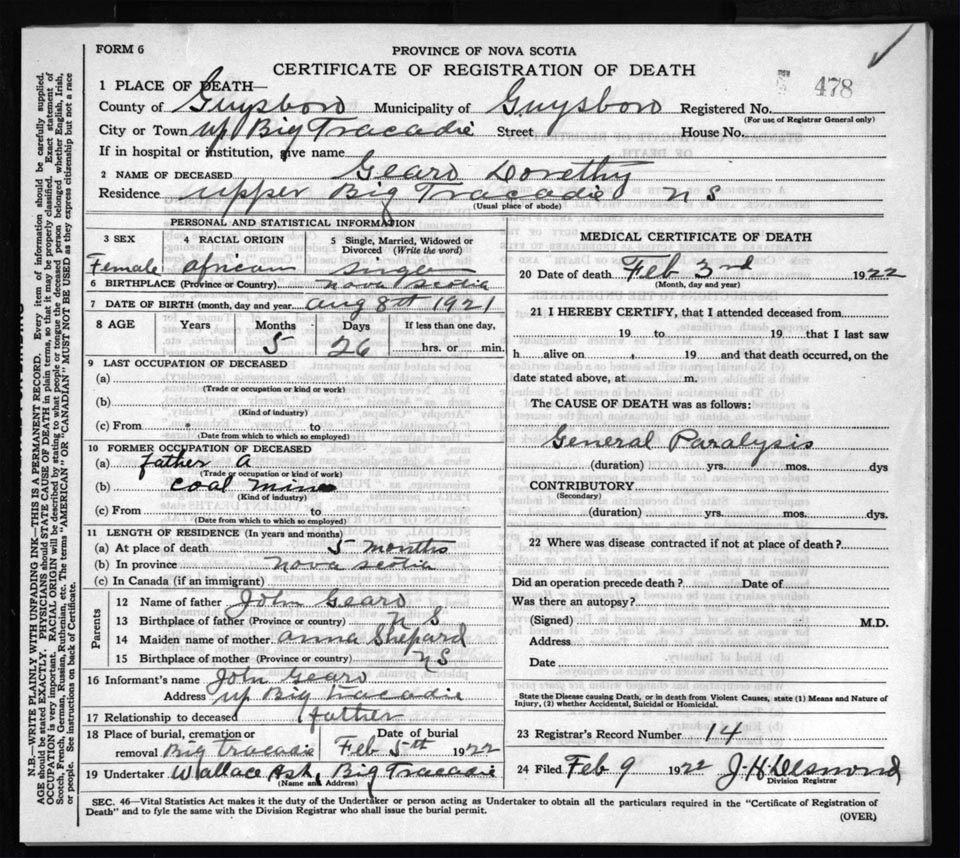 FORM 6
PROVINCE OF NOVA SCOTIA
CERTIFICATE OF REGISTRATION OF DEATH
478
1 PLACE OF DEATH—
County of Guysboro Municipality of Guysboro Registered No.
(For use of Registrar General only)
City or Town up Big Tracadie Street House No.
If in hospital or institution, give name
2 NAME OF DECEASED Gearo Dorethy
Residence upper Big Tracadie N S
(Usual place of abode)
PERSONAL AND STATISTICAL INFORMATION
3 SEX 4 RACIAL ORIGIN 5 Single, Married, Widowed or Divorced (Write the word)
Female african single
6 BIRTHPLACE (Province or Country) nova scotia
7 DATE OF BIRTH (month, day and year) aug 8th 1921
8 AGE Years Months Days If less than one day,
5 26 hrs. or min.
9 LAST OCCUPATION OF DECEASED
(a)
(Trade or occupation or kind of work)
(b)
(Kind of industry)
(c) From to
(Date from which to which so employed)
10 FORMER OCCUPATION OF DECEASED
(a) father a
(Trade or occupation or kind of work)
(b) coal mine
(Kind of industry)
(c) From to
(Date from which to which so employed)
11 LENGTH OF RESIDENCE (In years and months)
(a) At place of death 5 months
(b) In province nova scotia
(c) In Canada (if an immigrant)
Parents
12 Name of father John Gearo
13 Birthplace of father (Province or country) N S
14 Maiden name of mother anna Shepard
15 Birthplace of mother (Province or country) NS
16 Informant's name John Gearo
Address up Big Tracadie
17 Relationship to deceased father
18 Place of burial, cremation or removal Big tracadie Date of burial Feb 5th 1922
19 Undertaker Wallace Ash, Big Tracadie
(Name and Address)
MEDICAL CERTIFICATE OF DEATH
20 Date of death Feb 3rd 1922
(Month, day and year)
21 I HEREBY CERTIFY, that I attended deceased from
19 to 19 that I last saw
h alive on , 19 and that death occurred, on the
date stated above, at m.
The CAUSE OF DEATH was as follows:
General Paralysis
(duration) yrs. mos. dys
CONTRIBUTORY
(Secondary)
(duration) yrs. mos. dys.
22 Where was disease contracted if not at place of death?
Did an operation precede death? Date of
Was there an autopsy?
(Signed) M.D.
Address
Date
State the Disease causing Death, or in death from Violent Causes, state (1) Means and Nature of
Injury, (2) whether Accidental, Suicidal or Homicidal.
23 Registrar's Record Number 14
24 Filed Feb 9 1922 J. H. Desmond
Division Registrar
SEC. 46—Vital Statistics Act makes it the duty of the Undertaker or person acting as Undertaker to obtain all the particulars required in the "Certificate of Registration of
Death" and to fyle the same with the Division Registrar who shall issue the burial permit.
(OVER)
N.B.—WRITE PLAINLY WITH UNFADING INK—THIS IS A PERMANENT RECORD. Every item of information should be carefully supplied.
AGE should be stated EXACTLY. PHYSICIANS should STATE CAUSE OF DEATH in plain terms, so that it may be properly classified. Exact statement of
OCCUPATION is very important. RACIAL ORIGIN will be described by stating to what people or tongue the deceased person belonged whether English, Irish,
Scotch, French, German, Russian, Ruthenian, etc. The terms "AMERICAN" OR "CANADIAN" MUST NOT BE USED as they express citizenship but not a race
or people. See instructions on back of Certificate.